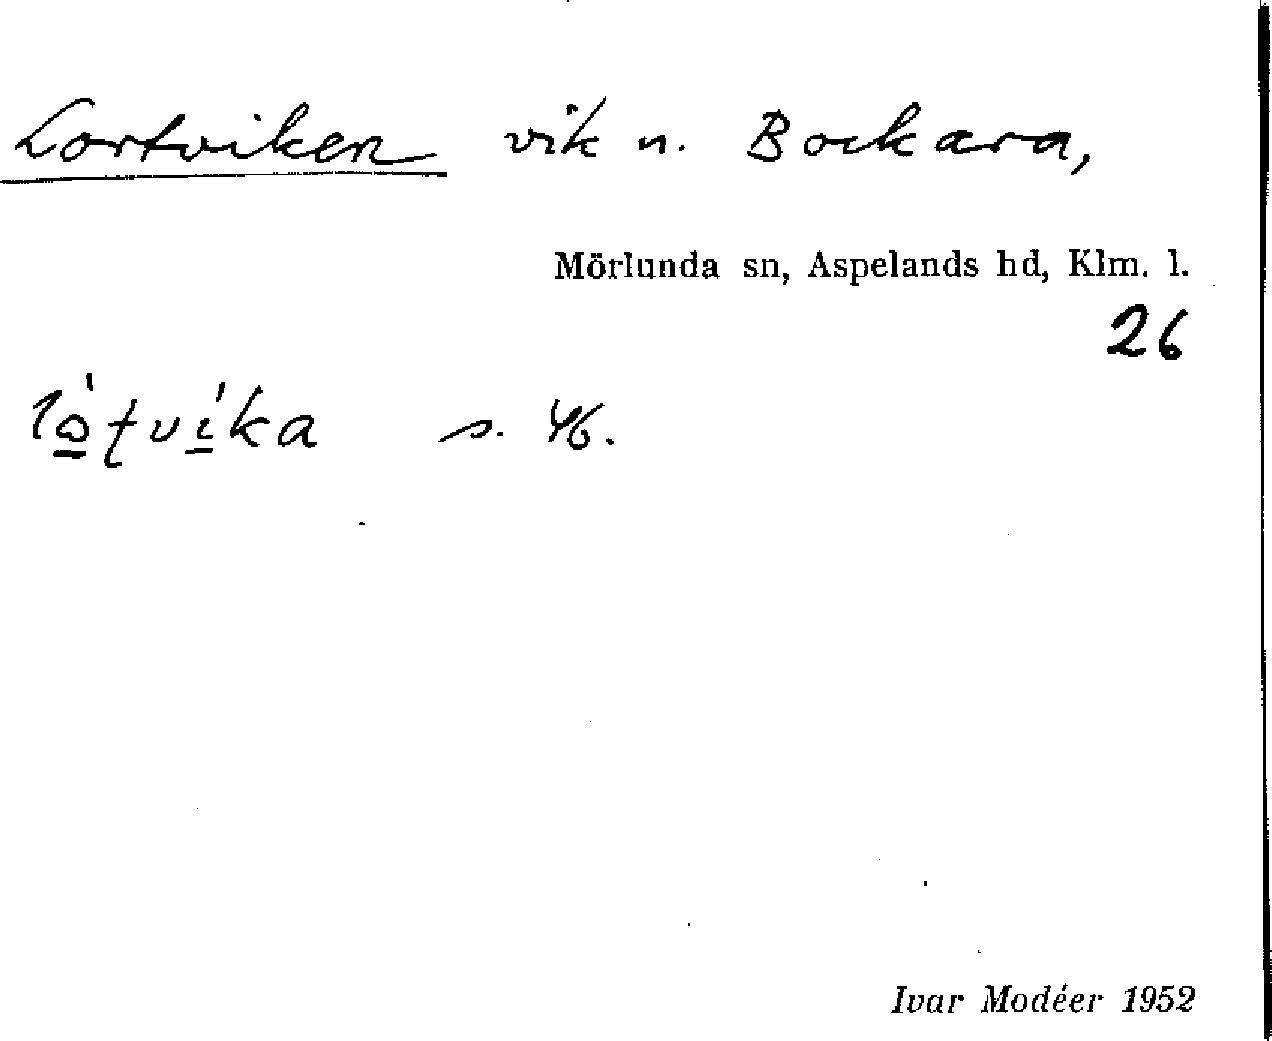 Lortviken vik n. Bockara,
Mörlunda sn, Aspelands hd, Klm. l.
26
s. 46.
Ivar Modéer 1952